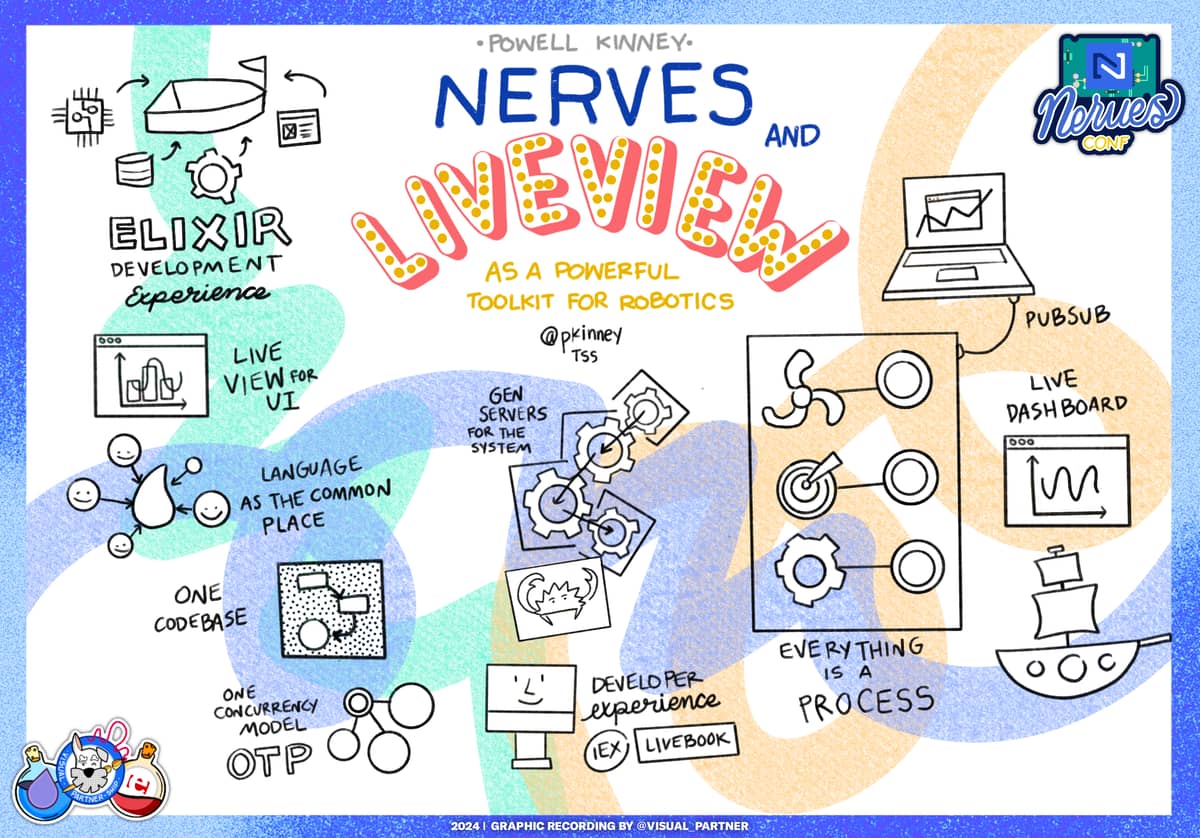 •POWELL KINNEY•
NERVES
AND
LIVEVIEW
AS A POWERFUL
TOOLKIT FOR ROBOTICS
@pkinney
TSS
Nerves
CONF
ELIXIR
DEVELOPMENT
Experience
LIVE
VIEW FOR
UI
LANGUAGE
AS THE COMMON
PLACE
ONE
CODEBASE
ONE
CONCURRENCY
MODEL
OTP
GEN
SERVERS
FOR THE
SYSTEM
DEVELOPER
experience
IEX
LIVEBOOK
PUBSUB
EVERYTHING
IS A
PROCESS
LIVE
DASHBOARD
VISUAL
PARTNER-SHIP
2024 | GRAPHIC RECORDING BY @VISUAL_PARTNER